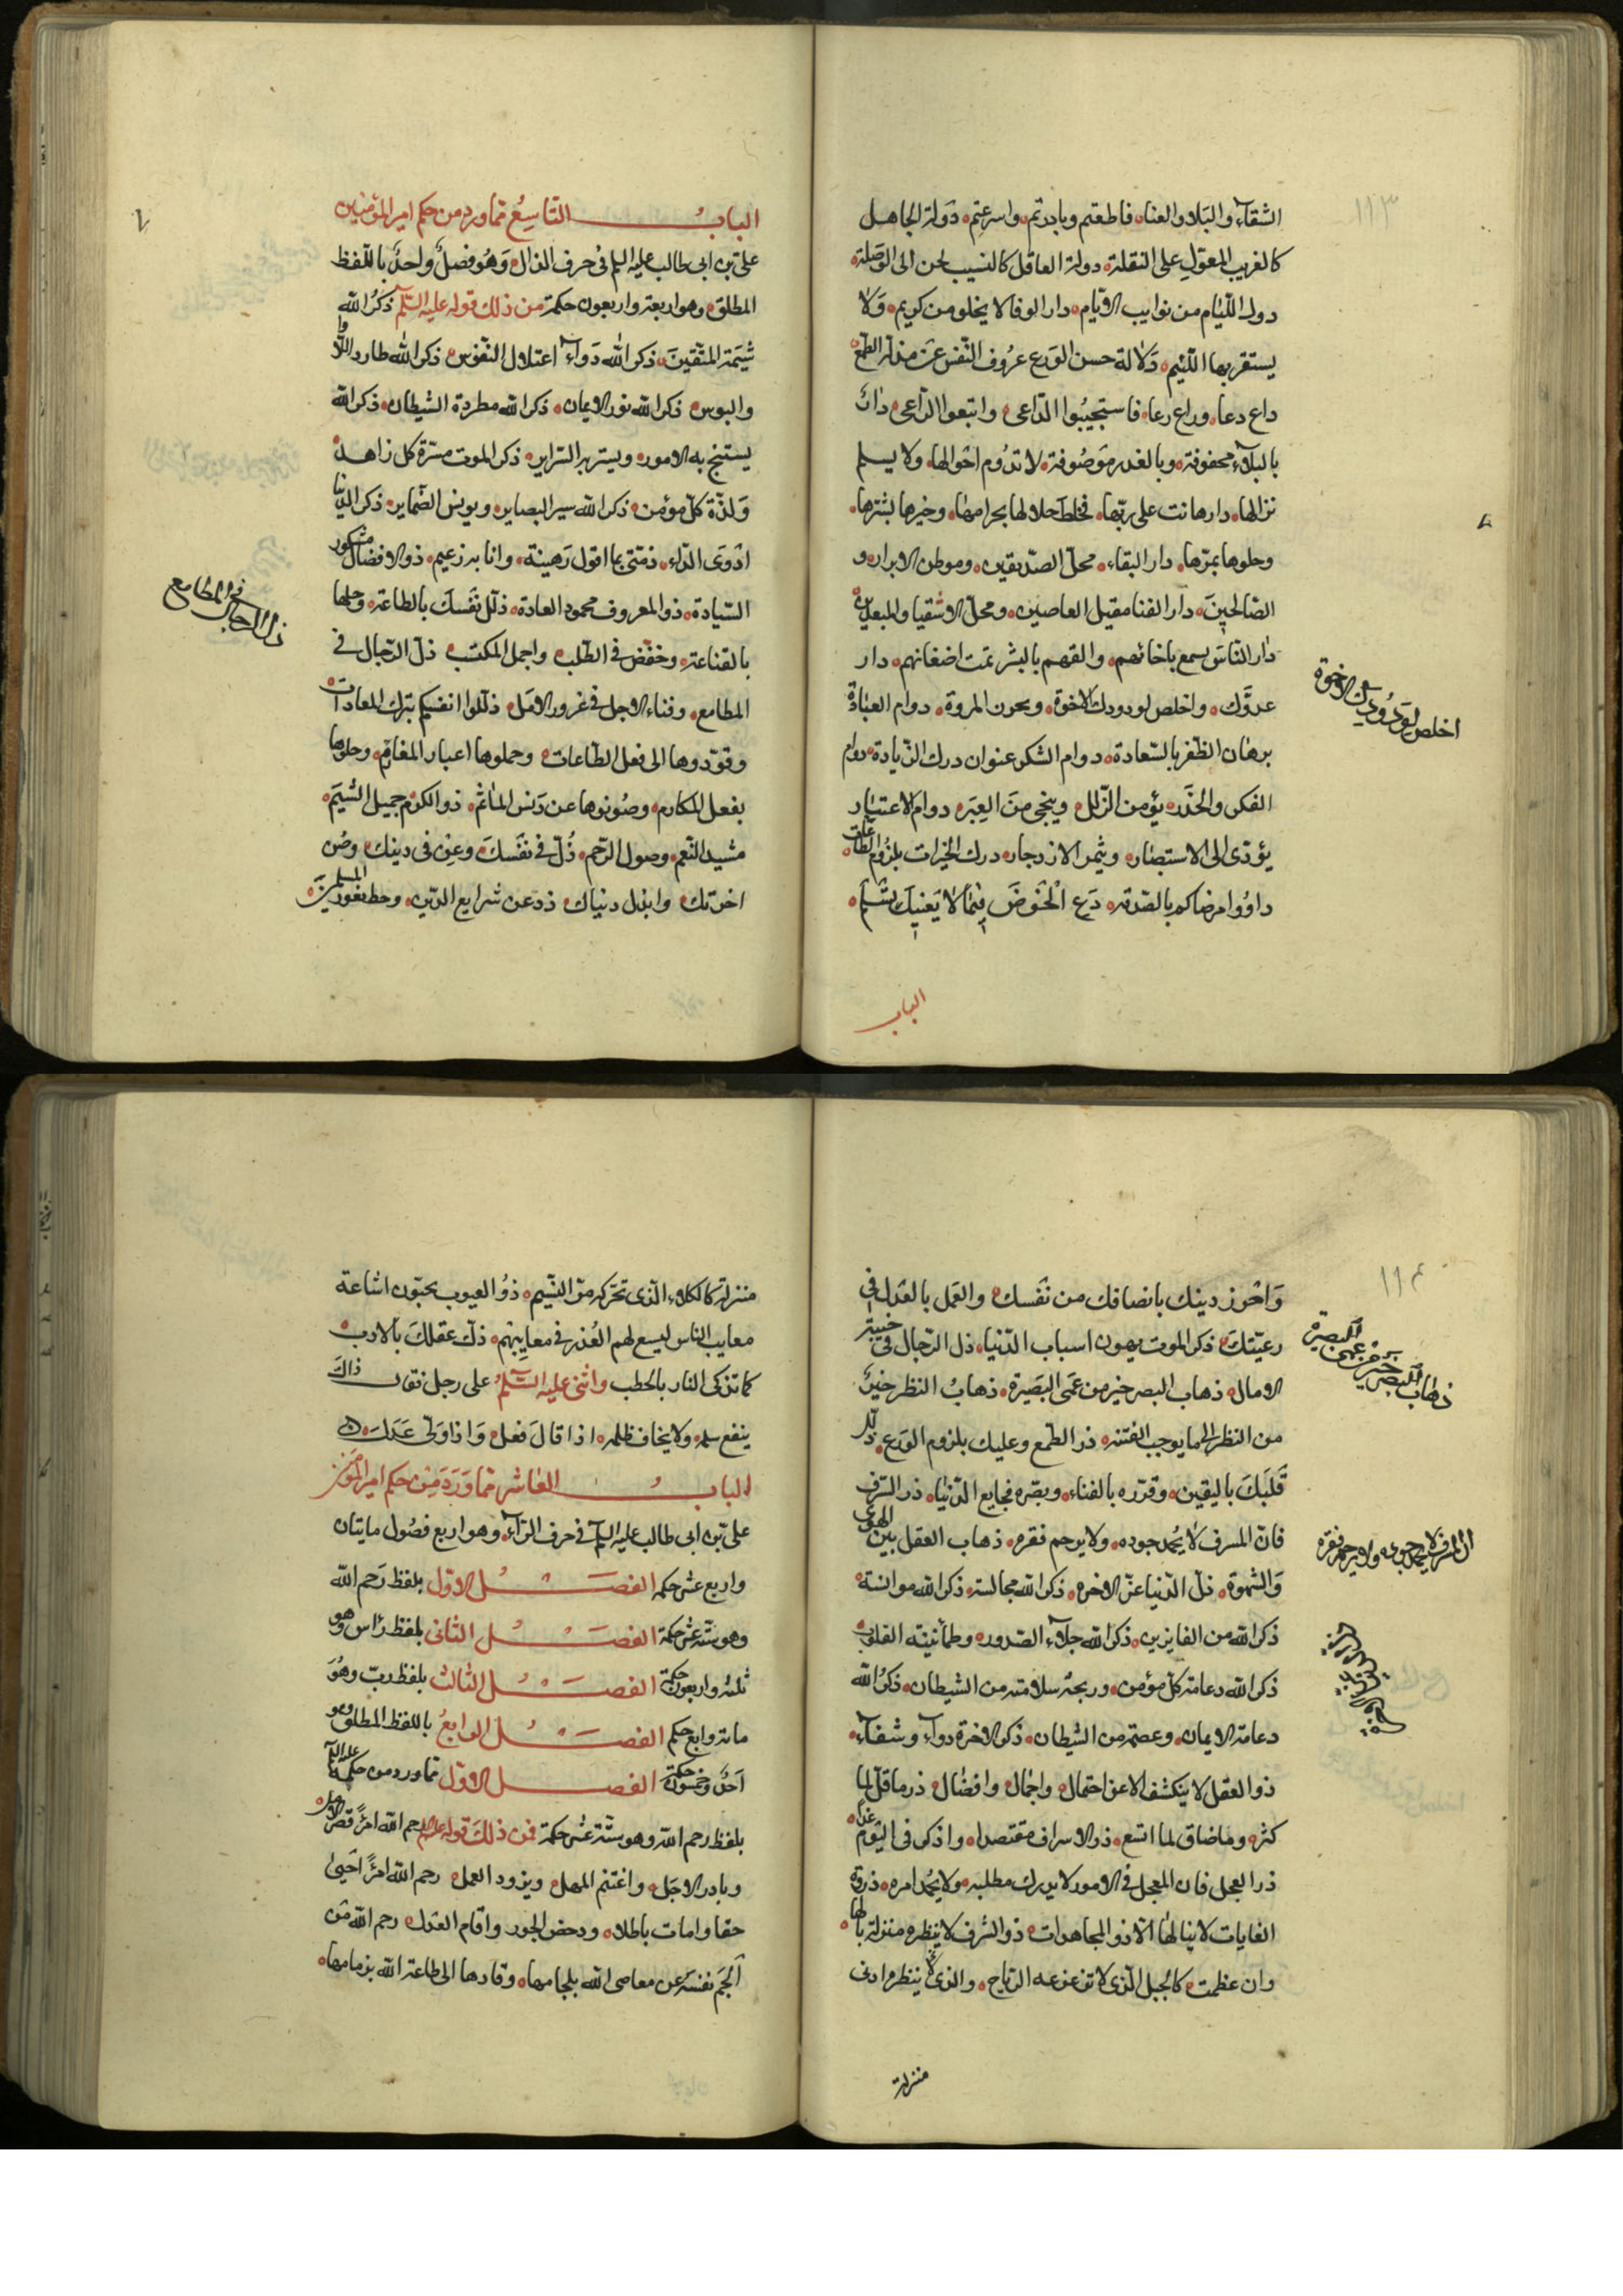 ١١٣
الشقاء والبلاء والعناء فاطعتم وبادرتم واسرعتم دولة الجاهل
كالغريب المعول على النقلة دولة العاقل كالنسيب يحن الى الوصلة
دولة اللئام من نوايب الايام دار الوفا لا يخلو من كريم ولا
يستقر بها اللئيم دلالة حسن الورع عزوف النفس عن مذلة الطمع
داع دعا وراع رعا فاستجيبوا الداعى واتبعوا الراعى دار
بالبلاء محفوفة وبالغدر موصوفة لا تدوم احوالها ولا يسلم
نزالها دار هانت على ربها فخلط حلالها بحرامها وخيرها بشرها
وحلوها بمرها دار البقاء محل الصديقين وموطن الابرار و
الصالحين دار الفنا مقيل العاصين ومحل الاشقيا والمبعدين
دار الناس
عدوك واخلص لودودك الاخوة دوام العبادة
اخلص لودودك الاخوة
برهان الظفر بالسعادة دوام الشكر عنوان درك الزيادة دوام
الفكر والحذر يؤمن الزلل وينجى من العبر دوام الاعتبار
يؤدى الى الاستبصار ويثمر الازدجار درك الخيرات بلزوم الطاعات
داووا مرضاكم بالصدقه دع الخوض فيما لا يعنيك تسلم
الباب
الباب التاسع مما ورد من حكم امير المؤمنين
على بن ابى طالب عليه السلم فى حرف الذال وهو فصل واحد باللفظ
المطلق وهو اربعة واربعون حكمة من ذلك قوله عليه السلم ذكر الله
شيمة المتقين ذكر الله دواء اعتلال النفوس ذكر الله طارد اللأوا
والبوس ذكر الله نور الايمان ذكر الله مطردة الشيطان ذكر الله
يستنجح به الامور ويستنير به السراير ذكر الموت مسرة كل زاهد
ولذة كل مؤمن ذكر الله سير البصاير ويونس الضماير ذكر الدنيا
ادوى الداء ذمتى بما اقول رهينة وانا به زعيم ذو الافضال مشكور
السيادة ذو المعروف محمود العادة ذلل نفسك بالطاعة وحلها
بالقناعة وخفض فى الطلب واجمل المكتسب ذل الرجال فى
ذل الرجال فى المطامع
المطامع وفناء الاجل فى غرور الامل ذللوا انفسكم بترك العادات
وقودوها الى فعل الطاعات وحملوها اعباء المغارم وحلوها
بفعل المكارم وصونوها عن دنس المآثم ذو الكرم جميل الشيم
مشيد النعم وصول الرحم ذل فى نفسك وعز فى دينك وصن
اخرتك وابذل دنياك ذد عن شرايع الدين وحط ثغور المسلمين
١١٤
واحرز دينك بانصافك من نفسك والعمل بالعدل فى
رعيتك ذكر الموت يهون اسباب الدنيا ذل الرجال فى خيبة
الامال ذهاب البصر خير من عمى البصيرة ذهاب النظر خير
ذهاب البصر خير من عمى البصيرة
من النظر الى ما يوجب الفتنه ذر الطمع وعليك بلزوم الورع ذلل
قلبك باليقين وقرره بالفناء وبصره فجايع الدنيا ذر السرف
فان المسرف لا يحمد جوده ولا يرحم فقره ذهاب العقل بين الهوى
ان المسرف لا يحمد جوده ولا يرحم فقره
والشهوة ذل الدنيا عز الاخره ذكر الله مجالسة ذكر الله موانسة
ذكر الله من الفايزين ذكر الله جلاء الصدور وطمأنينة القلوب
ذكر الله دعامة كل مؤمن وربحه سلامته من الشيطان ذكر الله
دعامة الايمان وعصمة من الشيطان ذكر الاخرة دواء وشفاء
ذو العقل لا ينكشف الا عن احتمال واجمال وافضال ذر ما قل لما
كثر وما ضاق لما اتسع ذر الاسراف مقتصدا واذكر فى اليوم غدا
ذر العجل فان العجل فى الامور لا يدرك مطلبه ولا يحمد امره ذروة
الغايات لا ينالها الا ذو المجاهدات ذو الشرف لا يبطره منزلة نالها
وان عظمت كالجبل الذى لا تزعزعه الرياح والدنى تبطره ادنى
منزلة
منزلة كالكلاء الذى تحركه مر النسيم ذوو العيوب يحبون اشاعة
معايب الناس ليسع لهم العذر فى معايبهم ذك عقلك بالادب
كما تذكى النار بالحطب واثنى عليه السلم على رجل فقال ذاك
ينفع سلمه ولا يخاف ظلمه اذا قال فعل واذا ولى عدل
الباب العاشر مما ورد من حكم امير المؤمنين
على بن ابى طالب عليه السلم فى حرف الراء وهو اربع فصول مايتان
واربع عشر حكمه الفصل الاول بلفظ رحم الله
وهو ستة عشر حكمة الفصل الثانى بلفظ راس وهو
ثلثه واربعون حكمة الفصل الثالث بلفظ رب وهو
مائة واربع حكم الفصل الرابع باللفظ المطلق وهو
احد وخمسون حكمة الفصل الاول مما ورد من حكمه عليه السلم
بلفظ رحم الله وهو ستة عشر حكمة فمن ذلك قوله عليه السلم رحم الله امرءا قصر الامل
وبادر الاجل واغتنم المهل وتزود العمل رحم الله امرءا احيى
حقا وامات باطلا ودحض الجور واقام العدل رحم الله من
الجم نفسه عن معاصى الله بلجامها وقادها الى طاعة الله بزمامها